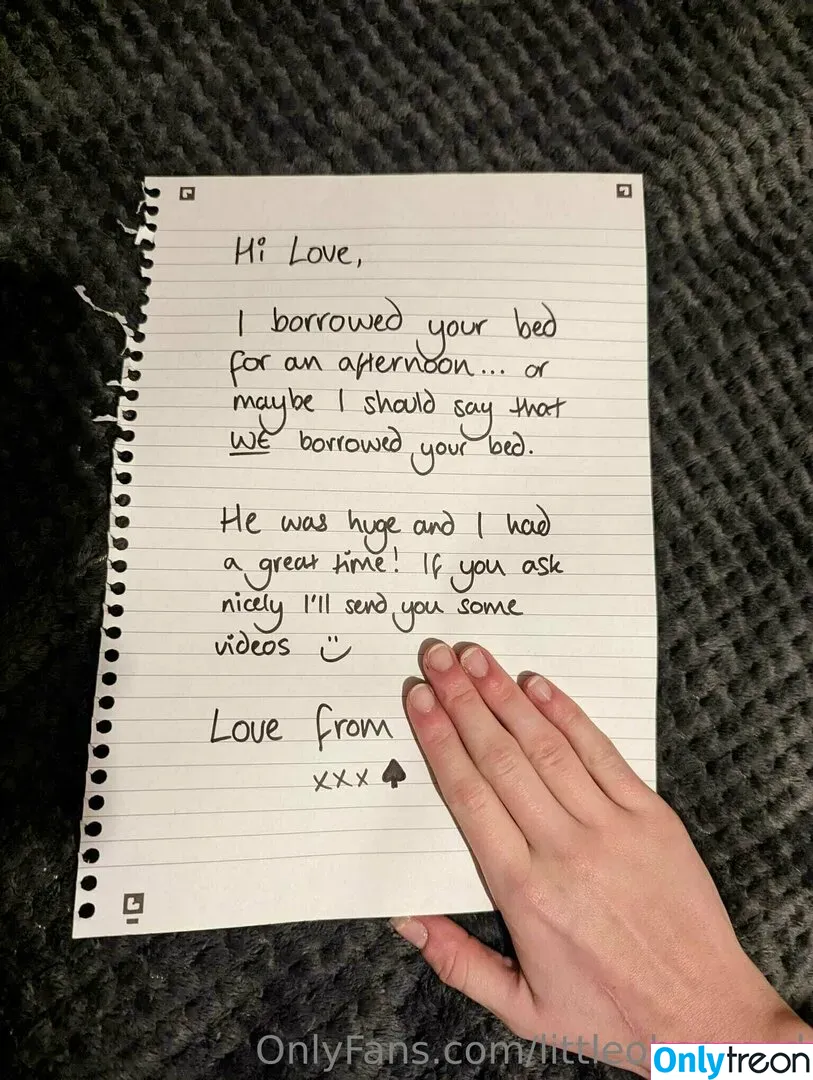 Hi Love,
I borrowed your bed
for an afternoon... or
maybe I should say that
WE borrowed your bed.
He was huge and I had
a great time! If you ask
nicely I'll send you some
videos :)
Love from
xxx ♠
OnlyFans.com/
Onlytreon